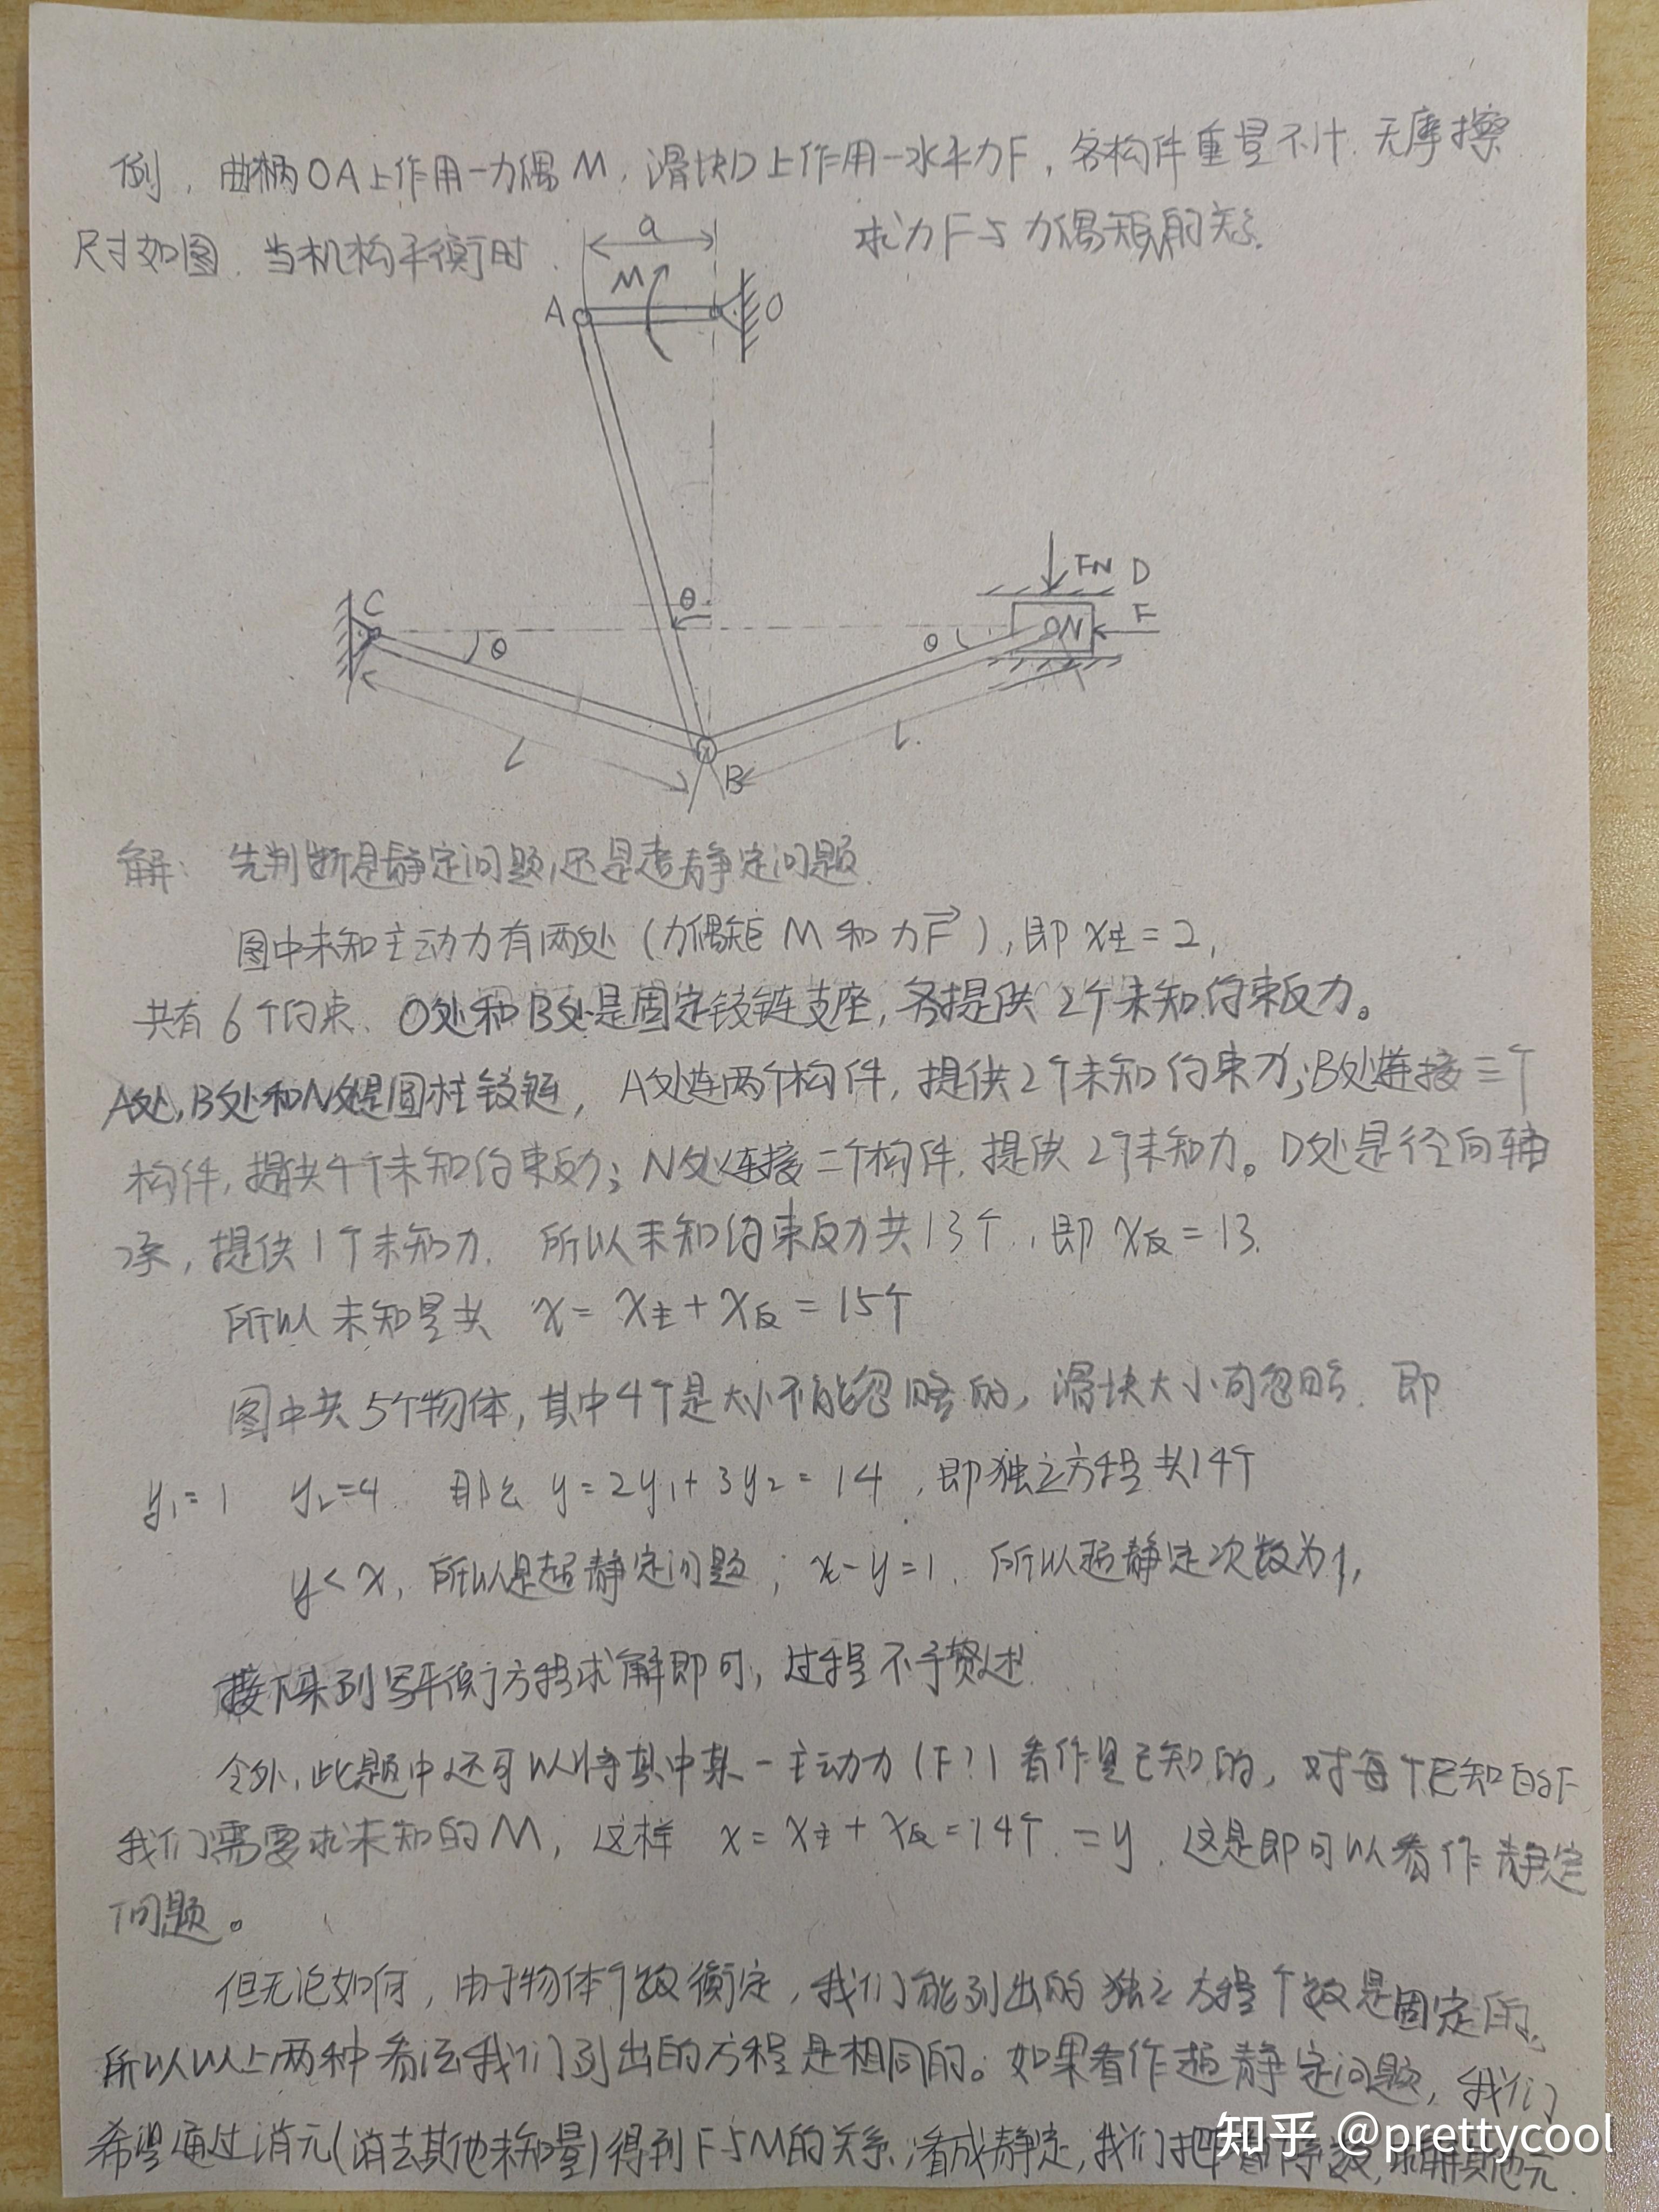 例, 曲柄OA上作用一力偶M, 滑块D上作用一水平力F, 各构件重量不计. 无摩擦
尺寸如图. 当机构平衡时. 求力F与力偶矩M的关系.
a
M
A
O
θ
FN D
C
F
θ
θ
N
L
L.
B
解: 先判断是静定问题,还是超静定问题.
图中未知主动力有两处 (力偶矩 M 和 力F), 即 x主 = 2,
共有 6个约束. O处和B处是固定铰链支座, 各提供 2个未知约束反力。
A处,B处和N处是圆柱铰链, A处连两个构件, 提供2个未知约束力;B处连接三个
构件, 提供4个未知约束反力; N处连接二个构件, 提供2个未知力。D处是径向轴
承, 提供1个未知力. 所以未知约束反力共13个, 即 x反 = 13.
所以未知量共 x = x主 + x反 = 15个
图中共5个物体, 其中4个是大小不能忽略的, 滑块大小可忽略. 即
y₁=1 y₂=4. 那么 y = 2y₁+3y₂ = 14, 即独立方程共14个
y < x, 所以是超静定问题; x-y=1. 所以超静定次数为1,
接下来列写平衡方程求解即可, 过程不予赘述
令外, 此题中还可以将其中某一主动力 (F?) 看作是已知的, 对每个已知的F
我们需要求未知的M, 这样 x = x主 + x反 = 14个. = y. 这是即可以看作静定
问题。
但无论如何, 由于物体个数衡定, 我们能列出的独立方程个数是固定的.
所以以上两种看法我们列出的方程是相同的。如果看作超静定问题, 我们
希望通过消元(消去其他未知量)得到F与M的关系; 看成静定, 我们把F
知乎 @prettycool